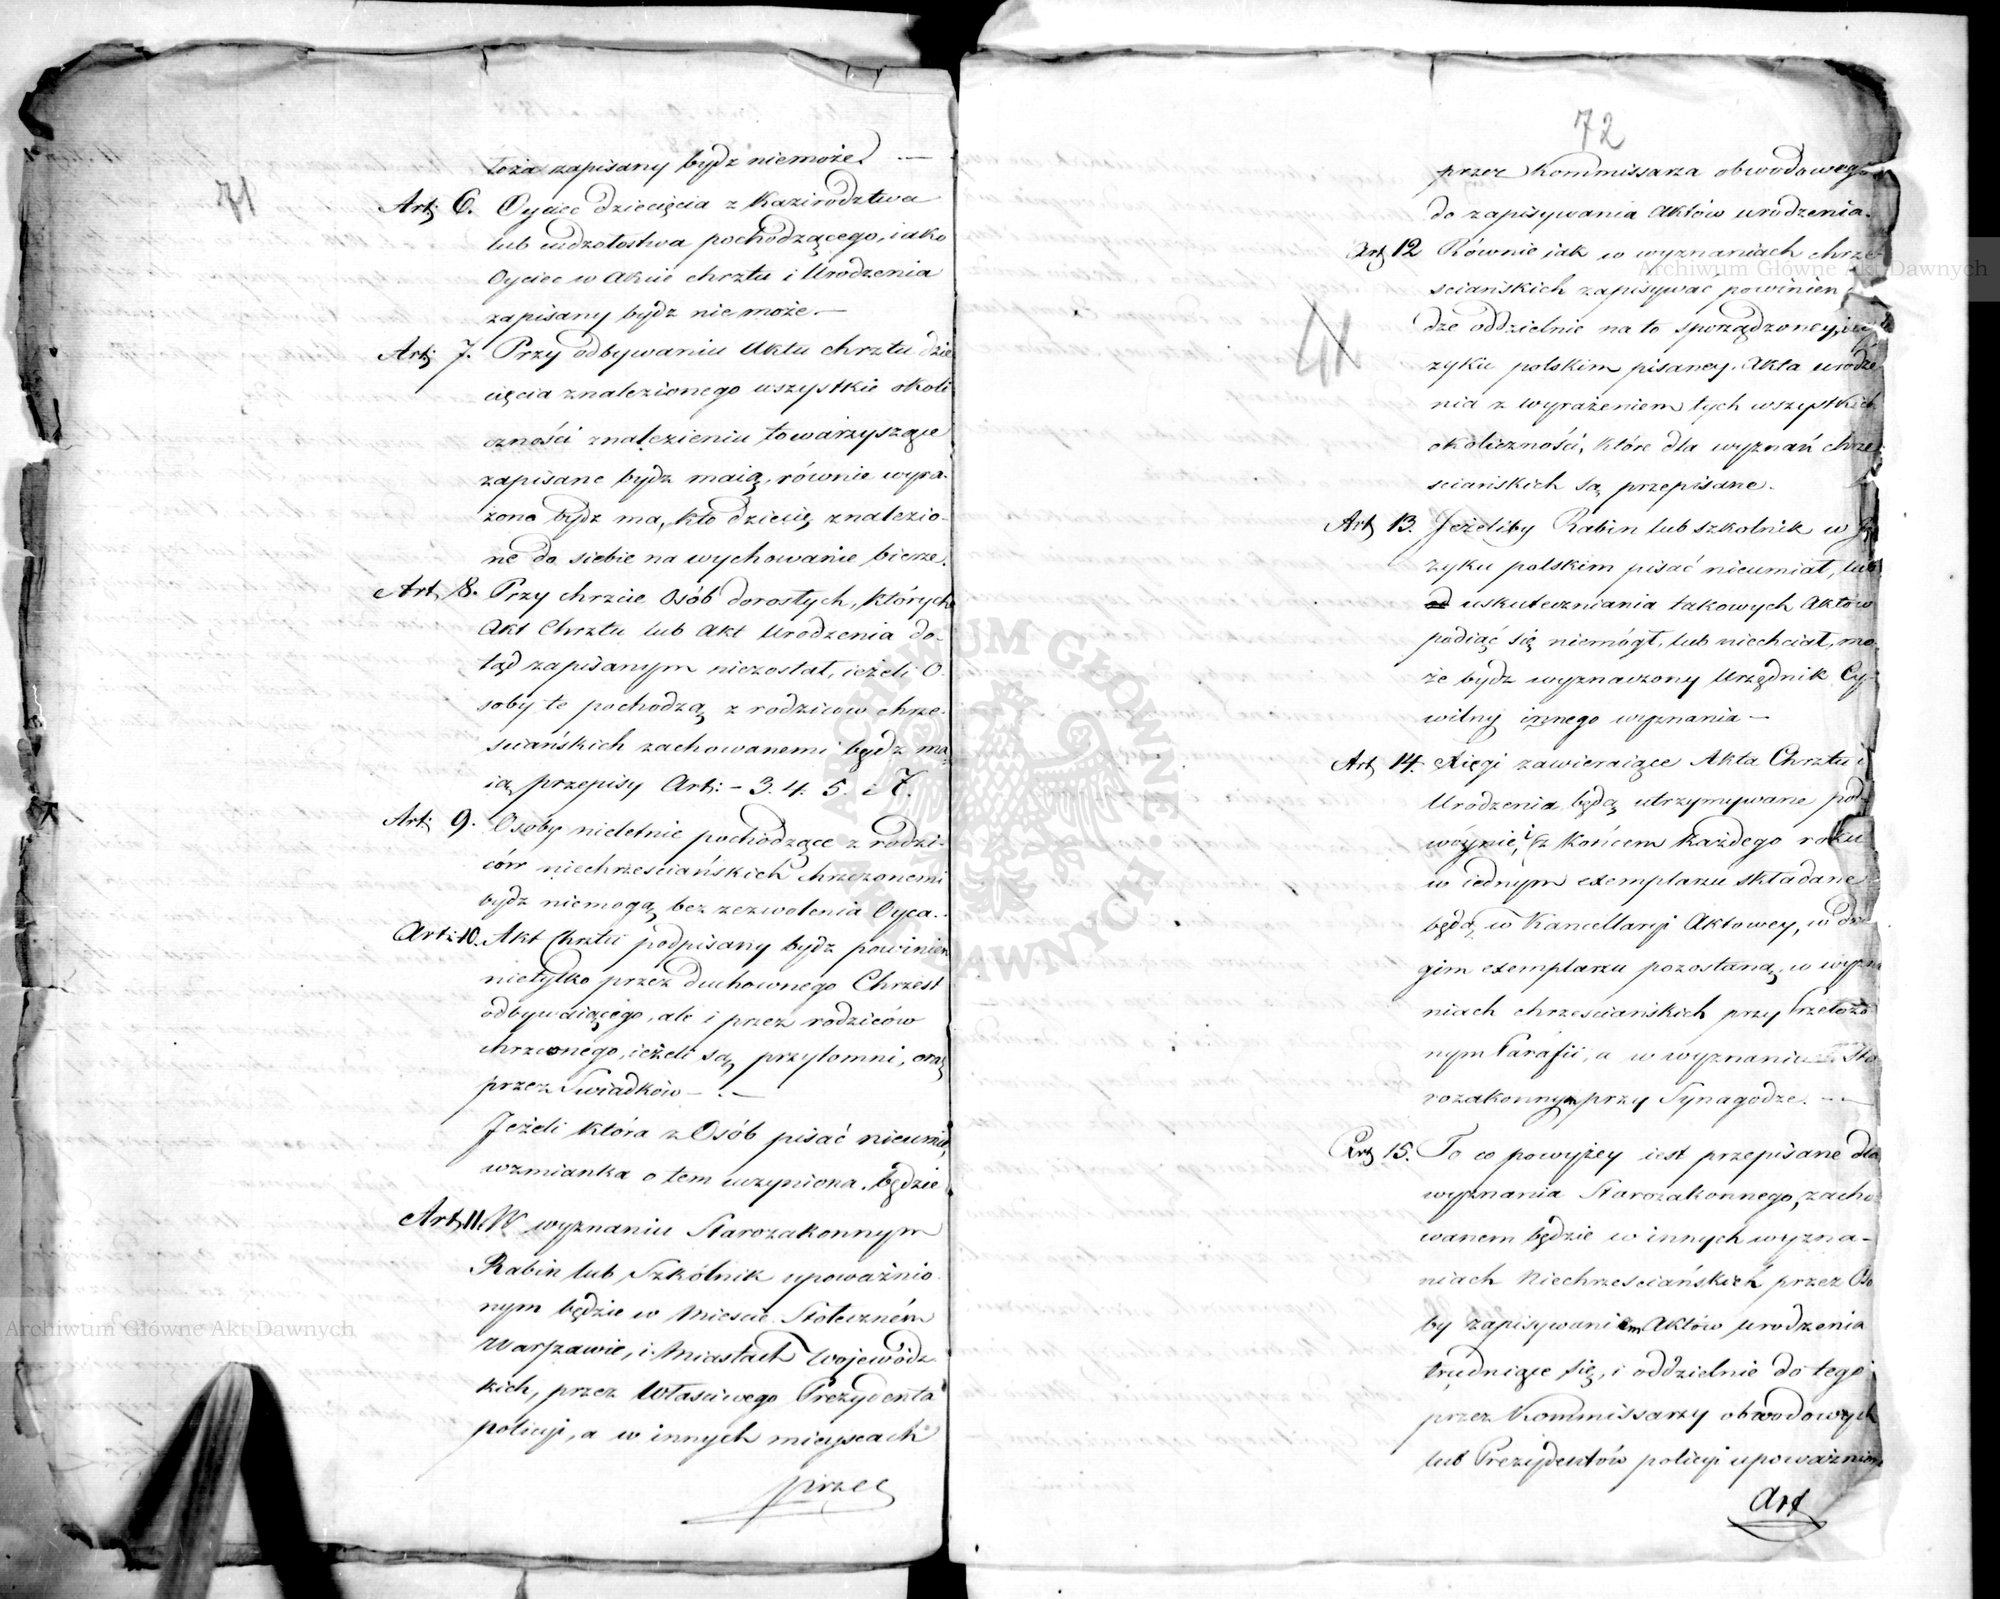 71
łoża zapisany bydz niemoże. —
Art: 6. Oyciec dziecięcia z Kazirodztwa
lub cudzołostwa pochodzącego, iako
Oyciec w akcie chrztu i Urodzenia
zapisany bydz nie może. —
Art: 7. Przy odbywaniu Aktu chrztu dzie
cięcia znalezionego wszystkie okoli
czności znalezieniu towarzyszące
zapisane bydz maią, równie wyra-
żone bydz ma, kto dziecię znalezio-
ne do siebie na wychowanie bierze.
Art. 8. Przy chrzcie Osób dorosłych, których
Akt Chrztu lub Akt Urodzenia do-
tąd zapisanym niezostał, ieżeli O
soby te pochodzą z rodziców chrze-
sciańskich zachowanemi będz ma
ią przepisy Art: – 3. 4. 5. i 7.
Art: 9. Osoby nieletnie pochodzące z rodzi-
ców niechrześciańskich chrzczonemi
bydz niemogą bez zezwolenia Oyca.
Art: 10. Akt Chrztu podpisany bydz powinien
nietylko przez duchownego Chrzest
odbywaiącego, ale i przez rodziców
chrzconego, ieżeli są przytomni, oraz
przez Swiadków — . —
Jeżeli która z Osób pisać nieumie,
wzmianka o tem uczyniona będzie
Art. 11. W wyznaniu Starozakonnym
Rabin lub Szkólnik upoważnio
nym będzie w Miescie Stołeczném
Warszawie, i Miastach Wojewódz
kich, przez Właściwego Prezydenta
policyi, a w innych mieyscach
przez
72
przez Kommissarza obwodowego
do zapisywania Aktów urodzenia.
Art 12 Równie jak w wyznaniach chrze-
sciańskich zapisywać powinien
dze oddzielnie na to sporządzoney,
zyku polskim pisaney. Akta urodze
nia z wyrażeniem tych wszystkich
okoliczności, które dla wyznań chrze-
sciańskich są przepisane.
Art 13. Jeżeliby Rabin lub szkolnik w Ję
zyku polskim pisać nieumiał, lub
uskuteczniania takowych Aktów
podiąć się niemógł, lub niechciał, mo
że bydz wyznaczony Urzędnik Cy-
wilny innego wyznania —
Art 14. Xięgi zawieraiące Akta Chrztu i
Urodzenia będą utrzymywane pod-
wóynie, i z końcem każdego roku
w iednym exemplarzu składane
będą w Kancellaryi Aktowey, w dru
gim exemplarzu pozostaną, w wyzna
niach chrzesciańskich przy Przełożo
nym Parafii, a w wyznaniu Sta
rozakonnym przy Synagodze. — —
Art 15. To co powyżey iest przepisane dla
wyznania Starozakonnego, zacho
wanem będzie w innych wyzna-
niach Niechrześciańskich przez Oso
by zapisywaniem Aktów urodzenia
trudniące się, i oddzielnie do tego
przez Kommissarzy obwodowych
lub Prezydentów policyi upoważnione
Art
Archiwum Główne Akt Dawnych
Archiwum Główne Akt Dawnych
ARCHIWUM GŁÓWNE AKT DAWNYCH